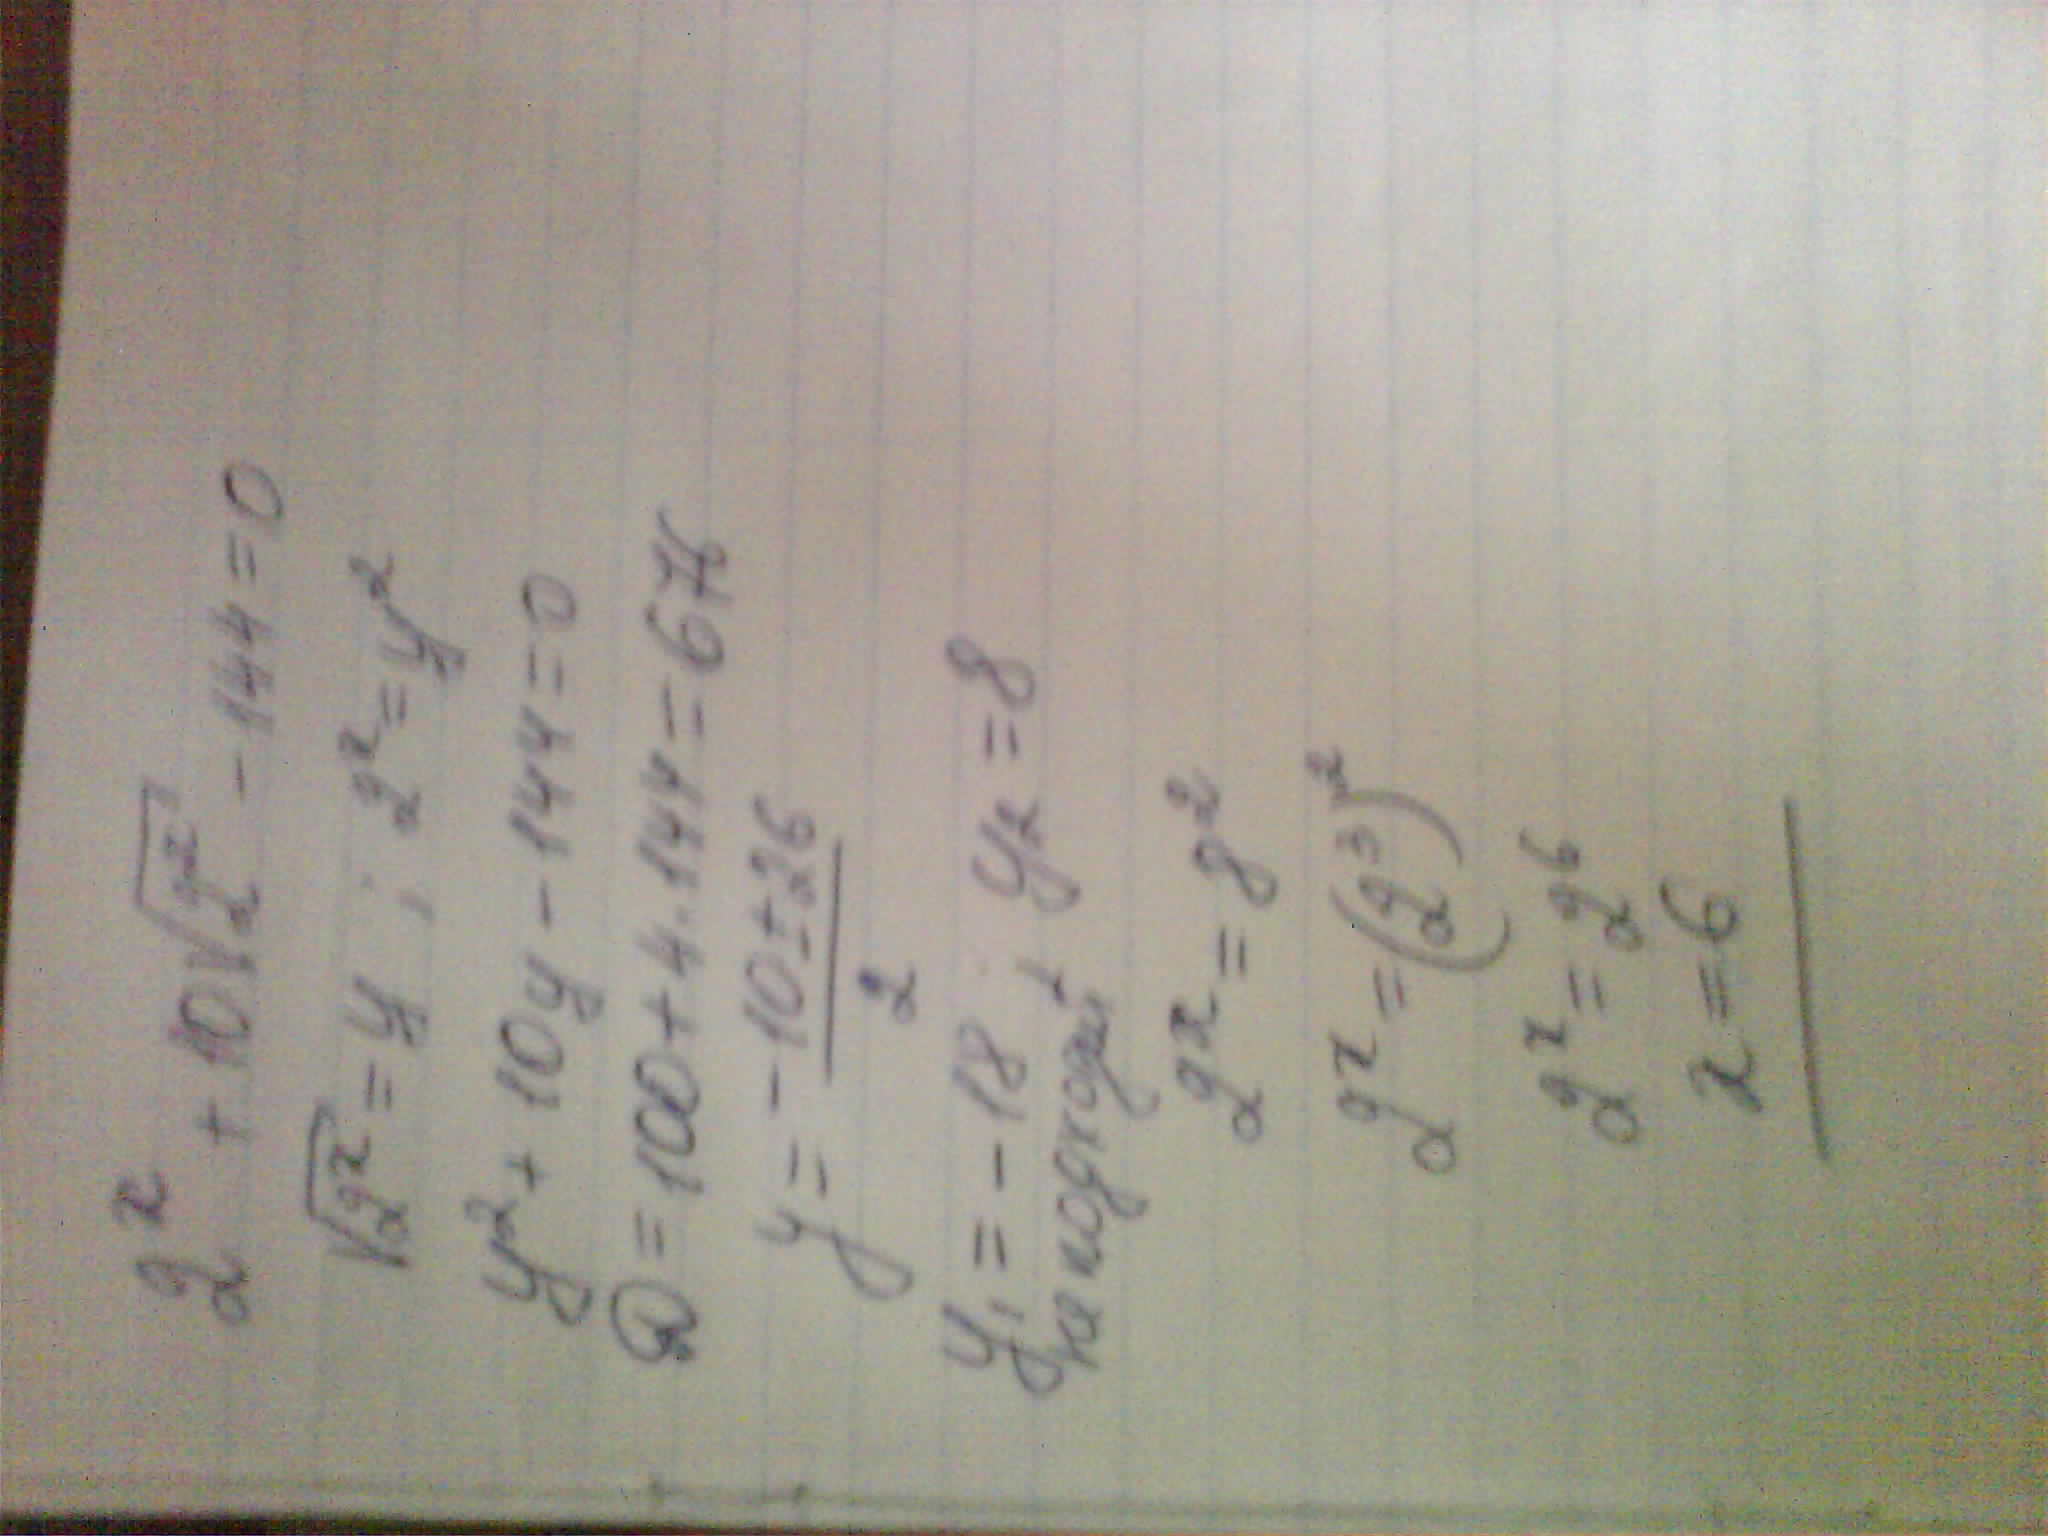 2ˣ + 10√2ˣ - 144 = 0
√2ˣ = y ; 2ˣ = y²
y² + 10y - 144 = 0
D = 100 + 4·144 = 676
y = (-10 ± 26)/2
y₁ = -18 ; y₂ = 8
не подходит
2ˣ = 8²
2ˣ = (2³)²
2ˣ = 2⁶
x = 6